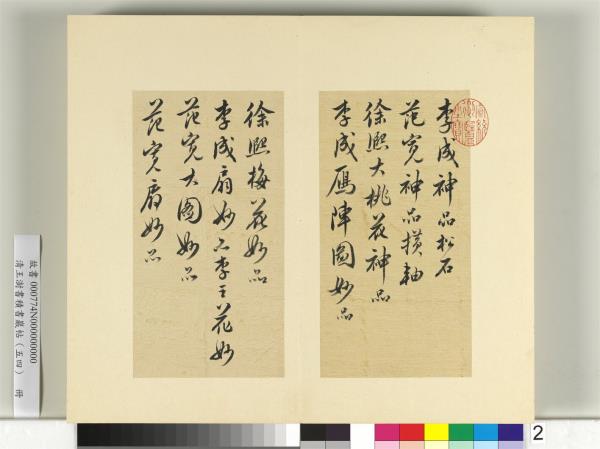 李成神品松石
范寬神品橫軸
徐熙大桃花神品
李成雁陣圖妙品
徐熙梅花妙品
李成扇妙品李王花妙
范寬大圖妙品
范寬扇妙品
故書 000774N000000000
清王澍書積書巖帖（五四） 冊
2